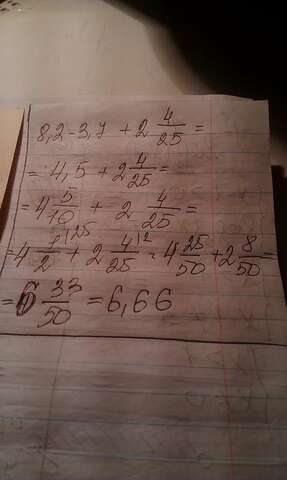 8,2-3,7 + 2 4/25 =
= 4,5 + 2 4/25 =
= 4 5/10 + 2 4/25 =
= 4 1/2 |25 + 2 4/25 |2 = 4 25/50 + 2 8/50 =
= 6 33/50 = 6,66